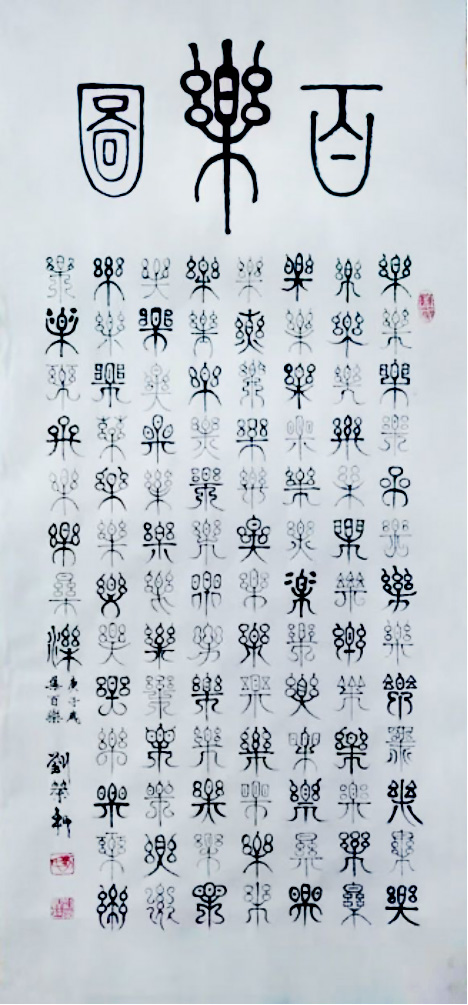 百樂圖
樂樂樂樂樂樂樂樂樂樂樂樂樂
樂樂樂樂樂樂樂樂樂樂樂樂樂
樂樂樂樂樂樂樂樂樂樂樂樂樂
樂樂樂樂樂樂樂樂樂樂樂樂樂
樂樂樂樂樂樂樂樂樂樂樂樂樂
樂樂樂樂樂樂樂樂樂樂樂樂樂
樂樂樂樂樂樂樂樂樂樂樂樂樂
樂樂樂樂樂樂樂樂
庚子歲
集百樂
劉